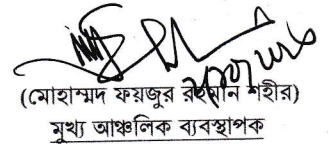 (মোহাম্মদ ফয়জুর রহমান শহীর)
মুখ্য আঞ্চলিক ব্যবস্থাপক